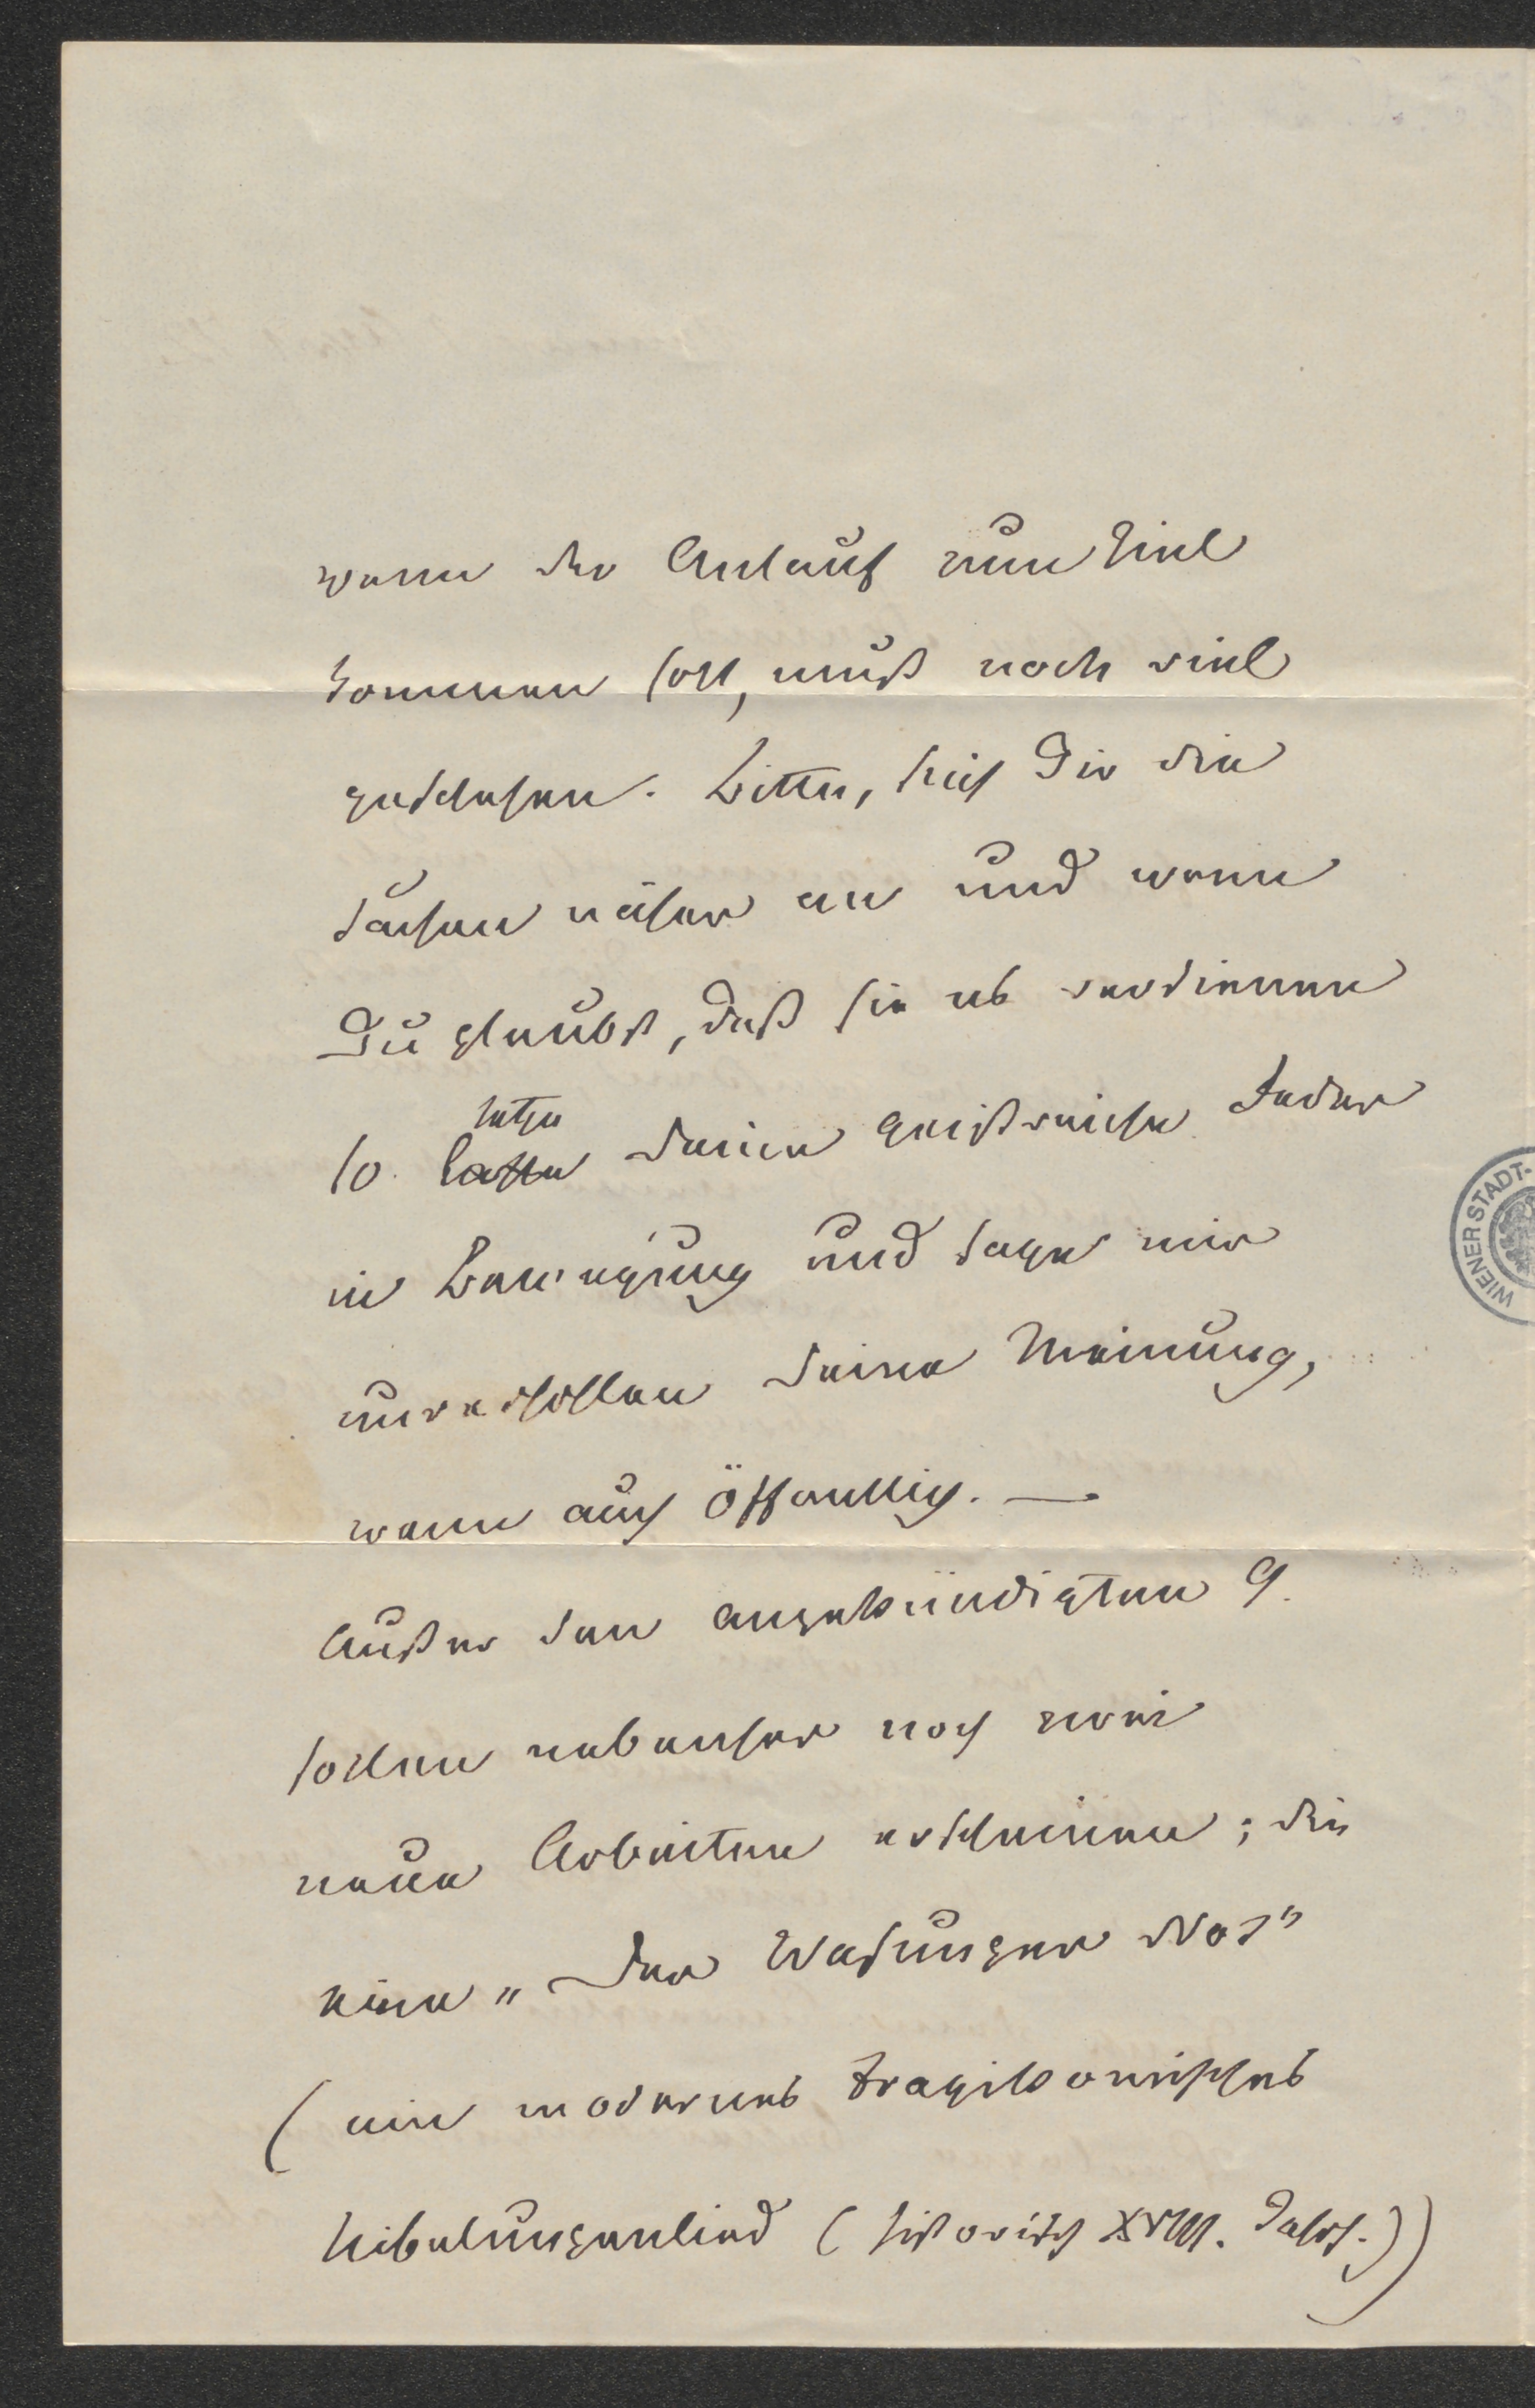 wenn der Anlauf zum Ziel
kommen soll, muß noch viel
geschehen. Bitte, sieh Dir die
Sachen näher an und wenn
Du glaubst, daß sie es verdienen
setze
so lasse Deine geistreiche Feder
in Bewegung und sage mir
unverhohlen Deine Meinung,
wenn auch öffentlich. —
Außer den angekündigten 9.
sollen nebenher noch zwei
neue Arbeiten erscheinen; die
eine „Der Wasunger Not"
(ein modernes tragikomisches
Nibelungenlied (historisch XVIII. Jahrh.))
WIENER STADT-